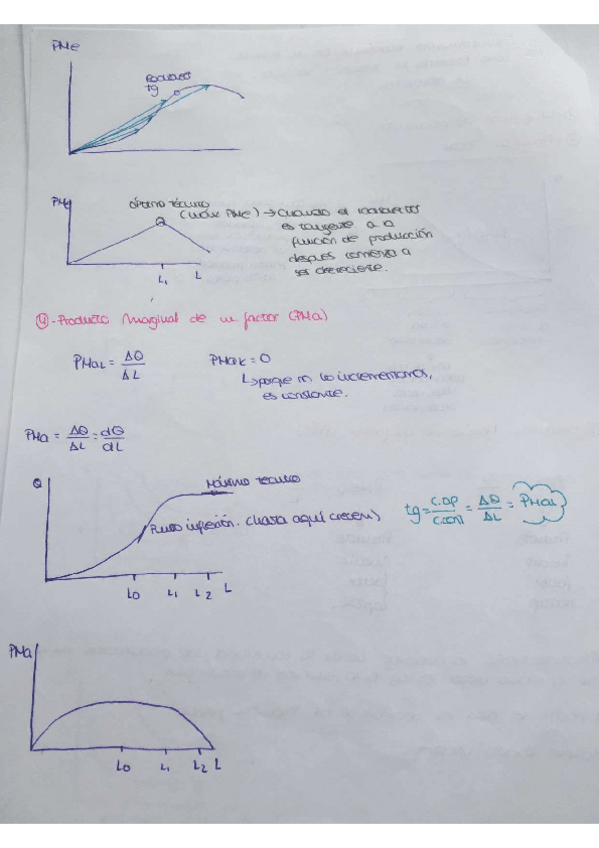 PMe
tg
PMe
óptimo técnico
(máx PMe) → cuando el
es tangente a la
función de producción
después comienza a
ser decreciente.
L₁ L
4 - Producto Marginal de un factor (PMa)
PMaL = ΔQ/ΔL PMaK = 0
↳ porque no lo incrementamos,
es constante.
PMa = ΔQ/ΔL = dQ/dL
Q
Máximo técnico
Punto inflexión. (hasta aquí crecen)
tg = C.OP/C.CONT = ΔQ/ΔL = PMaL
L0 L1 L2 L
PMa
L0 L1 L2 L